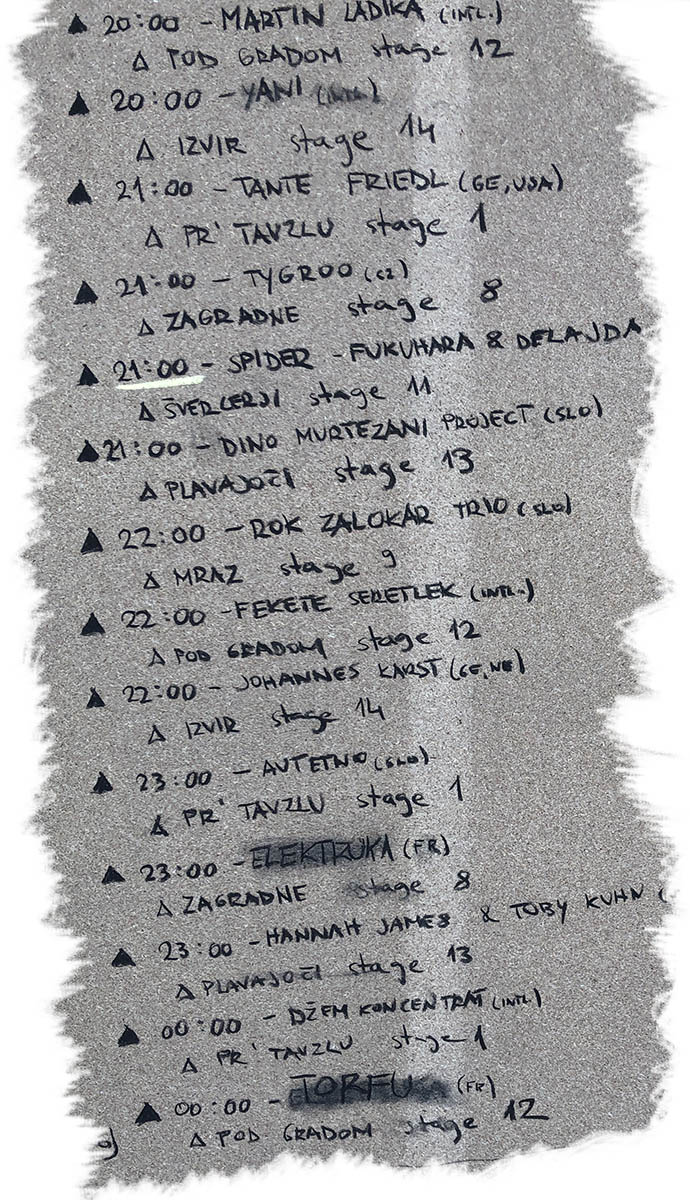 ▲ 20:00 - MARTIN LADIKA (INTL.)
Δ POD GRADOM stage 12
▲ 20:00 - YANI
Δ IZVIR stage 14
▲ 21:00 - TANTE FRIEDL (GE, USA)
Δ PR' TAVZLU stage 1
▲ 21:00 - TYGROO (CZ)
Δ ZAGRADNE stage 8
▲ 21:00 - SPIDER - FUKUHARA & DELAJDA
Δ ŠVERCERJI stage 11
▲ 21:00 - DINO MURTEZANI PROJECT (SLO)
Δ PLAVAJOČI stage 13
▲ 22:00 - ROK ZALOKAR TRIO (SLO)
Δ MRAZ stage 9
▲ 22:00 - FEKETE SERETLEK (INTL.)
Δ POD GRADOM stage 12
▲ 22:00 - JOHANNES KARST (GE, NE)
Δ IZVIR stage 14
▲ 23:00 - AVTETNO (SLO)
Δ PR' TAVZLU stage 1
▲ 23:00 - ELEKTRUKA (FR)
Δ ZAGRADNE stage 8
▲ 23:00 - HANNAH JAMES & TOBY KUHN (
Δ PLAVAJOČI stage 13
▲ 00:00 - DŽEM KONCENTRAT (INTL.)
Δ PR' TAVZLU stage 1
▲ 00:00 - TORFU (FR)
Δ POD GRADOM stage 12